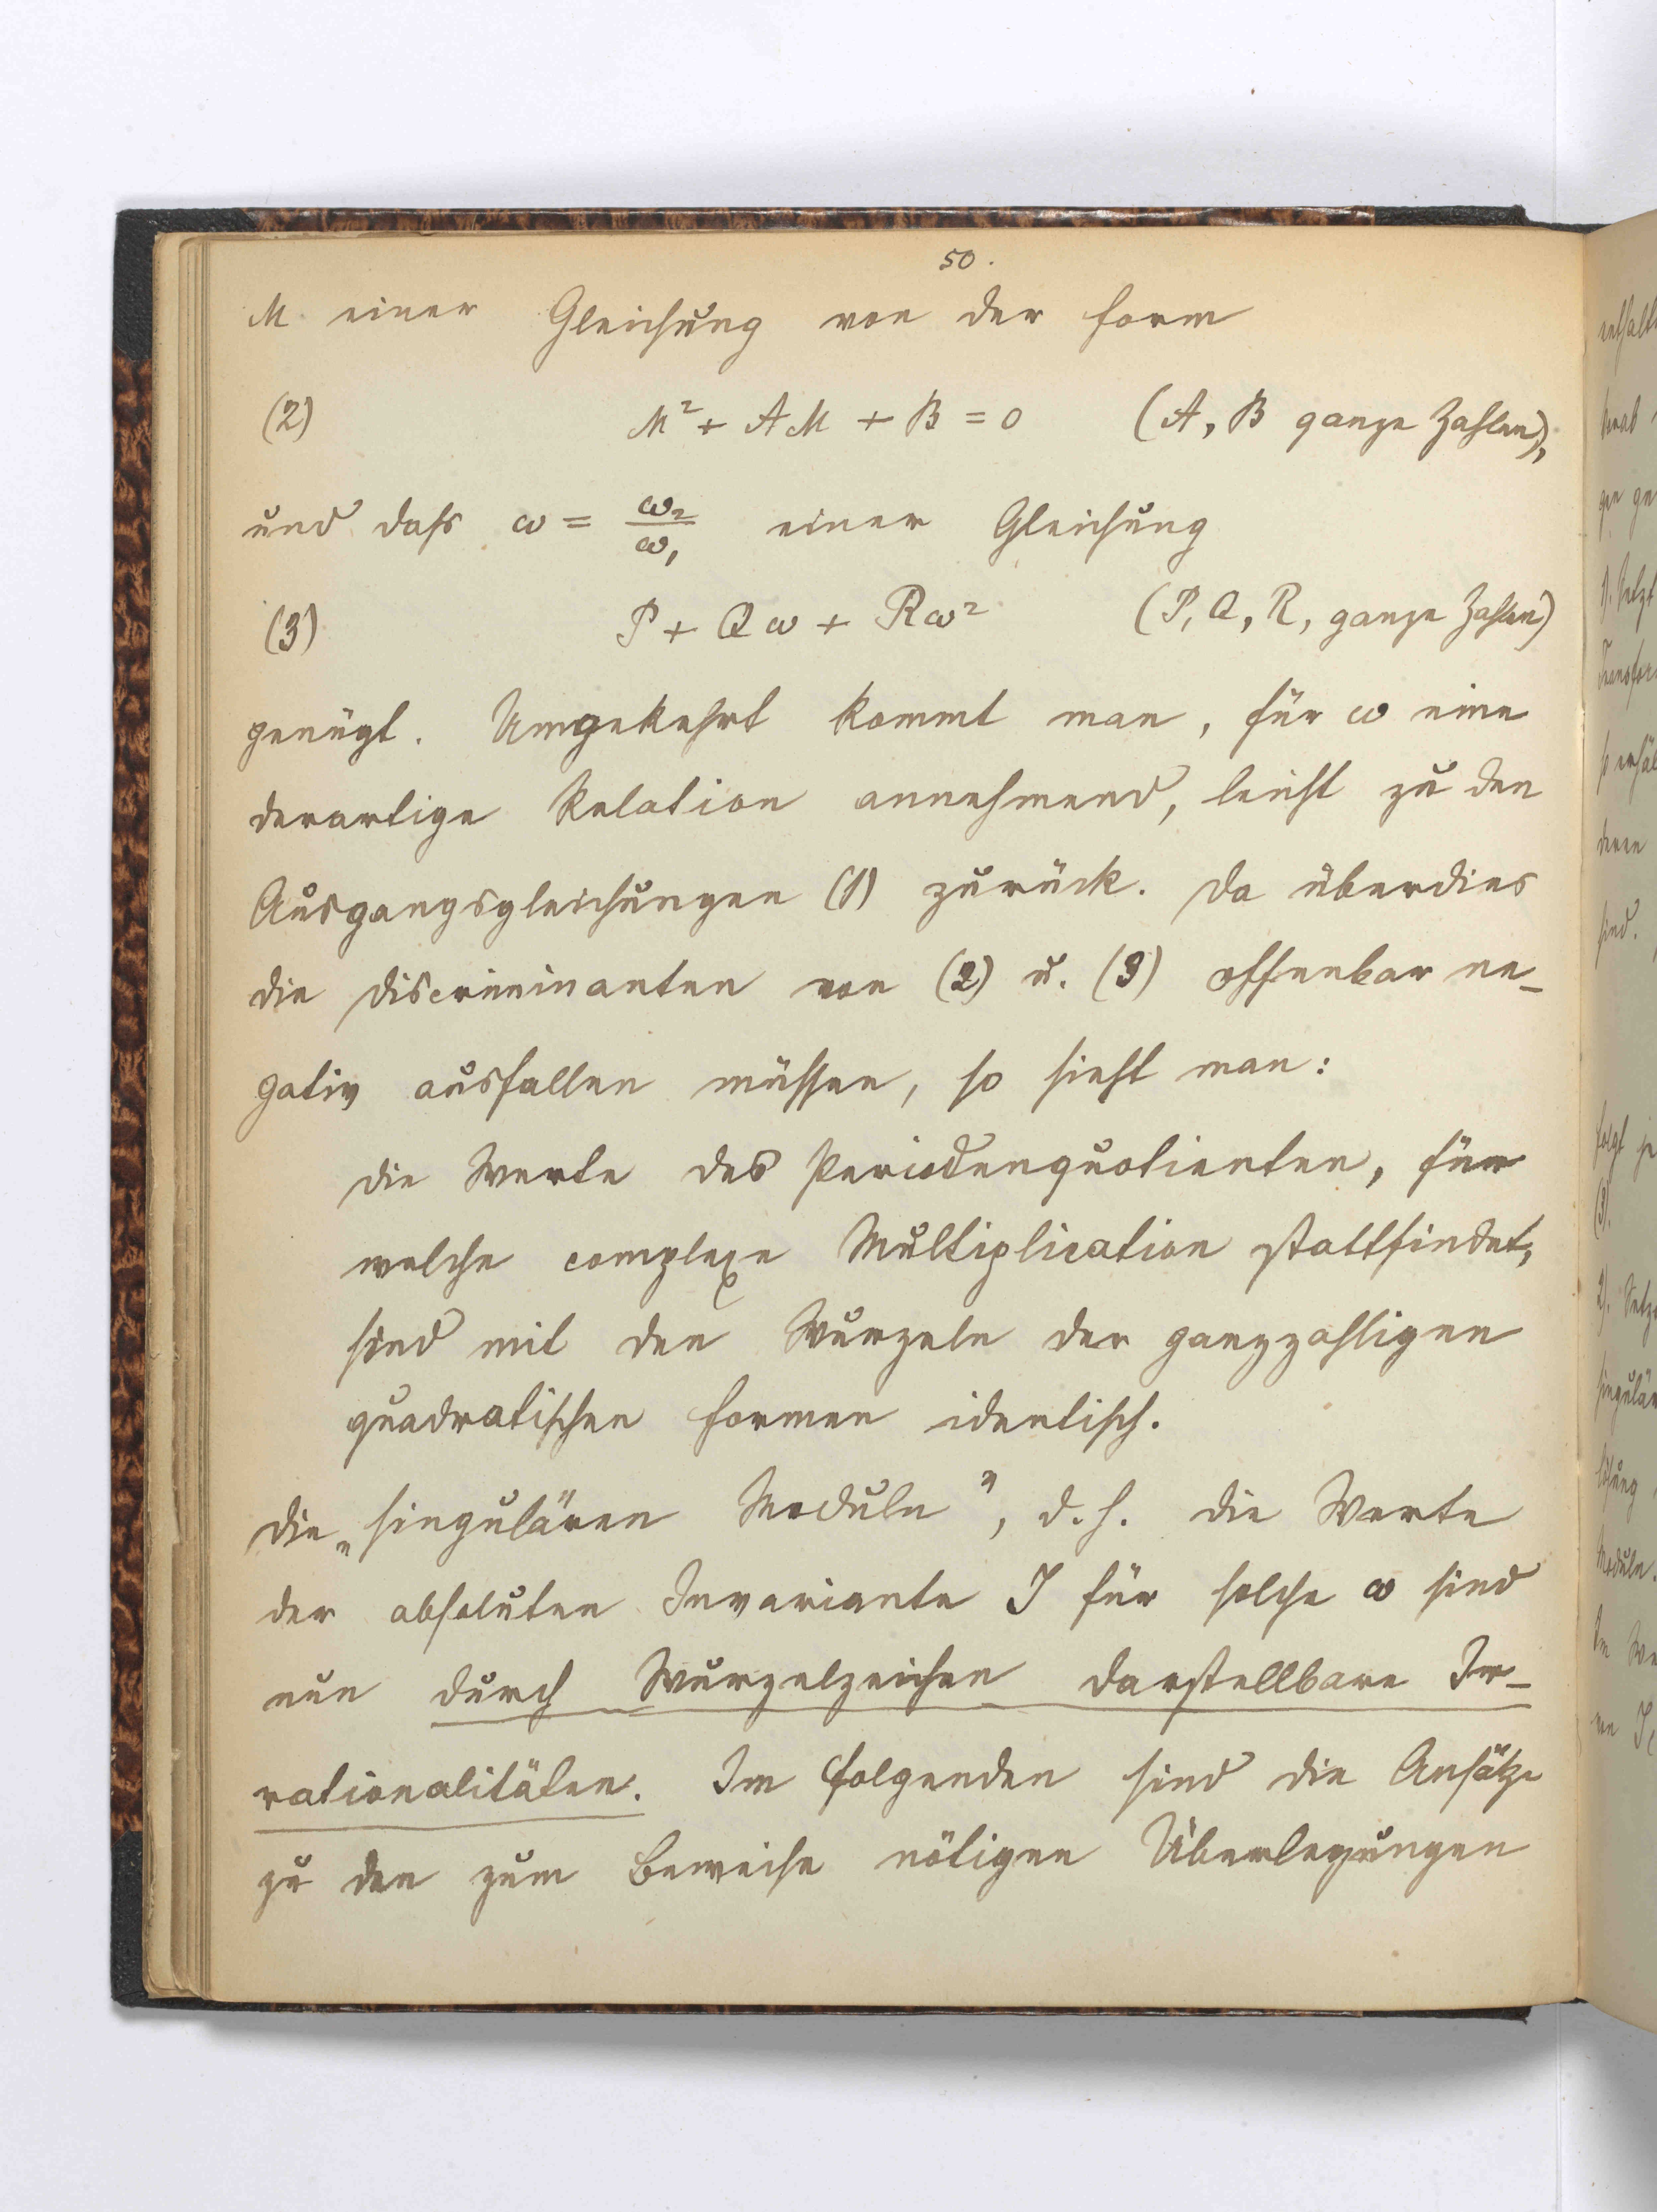 50.
M einer Gleichung von der Form
(2) M² + AM + B = 0 (A, B ganze Zahlen),
und daſs ω = ω₂/ω₁ einer Gleichung
(3) P + Qω + Rω² (P, Q, R, ganze Zahlen)
genügt. Umgekehrt kommt man, für ω eine
derartige Relation annehmend, leicht zu den
Ausgangsgleichungen (1) zurück. Da überdies
die Discriminanten von (2) u. (3) offenbar ne-
gativ ausfallen müssen, so sieht man:
Die Werte des Periodenquotienten, für
welche complexe Multiplication stattfindet,
sind mit den Wurzeln der ganzzahligen
quadratischen Formen identisch.
Die „singulären Moduln", d. h. die Werte
der absoluten Invariante J für solche ω sind
nun durch Wurzelzeichen darstellbare Ir-
rationalitäten. Im Folgenden sind die Ansätze
zu den zum Beweise nötigen Überlegungen